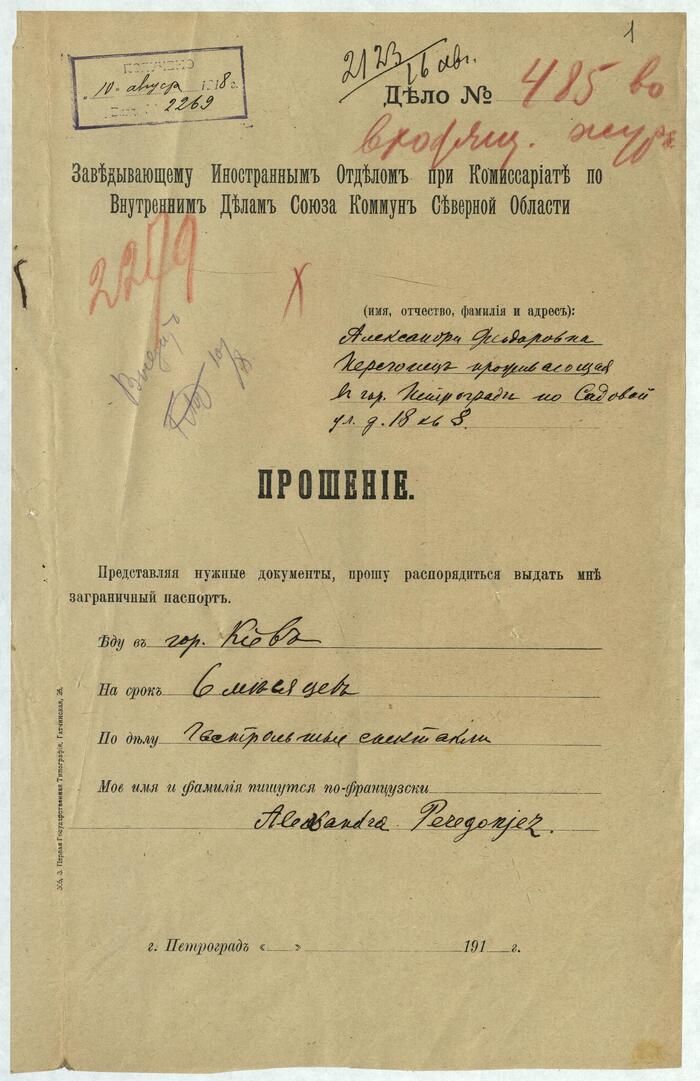 1
"10" августа 1918 г.
2269
2123
16 авг.
Дѣло № 485 во
входящ. жур
Завѣдывающему Иностраннымъ Отдѣломъ при Комиссаріатѣ по
Внутреннимъ Дѣламъ Союза Коммунъ Сѣверной Области
2279
(имя, отчество, фамилія и адресъ):
Александра Федоровна
Перегонецъ проживающая
въ гор. Петроградѣ по Садовой
ул. д. 18 кв 8.
10/8
ПРОШЕНІЕ.
Представляя нужные документы, прошу распорядиться выдать мнѣ
заграничный паспортъ.
Ѣду въ гор. Кіевъ
На срокъ 6 мѣсяцевъ
По дѣлу Гастрольные спектакли
Мое имя и фамилія пишутся по-французски
Alexsandra Peregonjez.
г. Петроградъ « » 191 г.
Изд. 3. Первая Государственная Типографія, Гатчинская, 26.